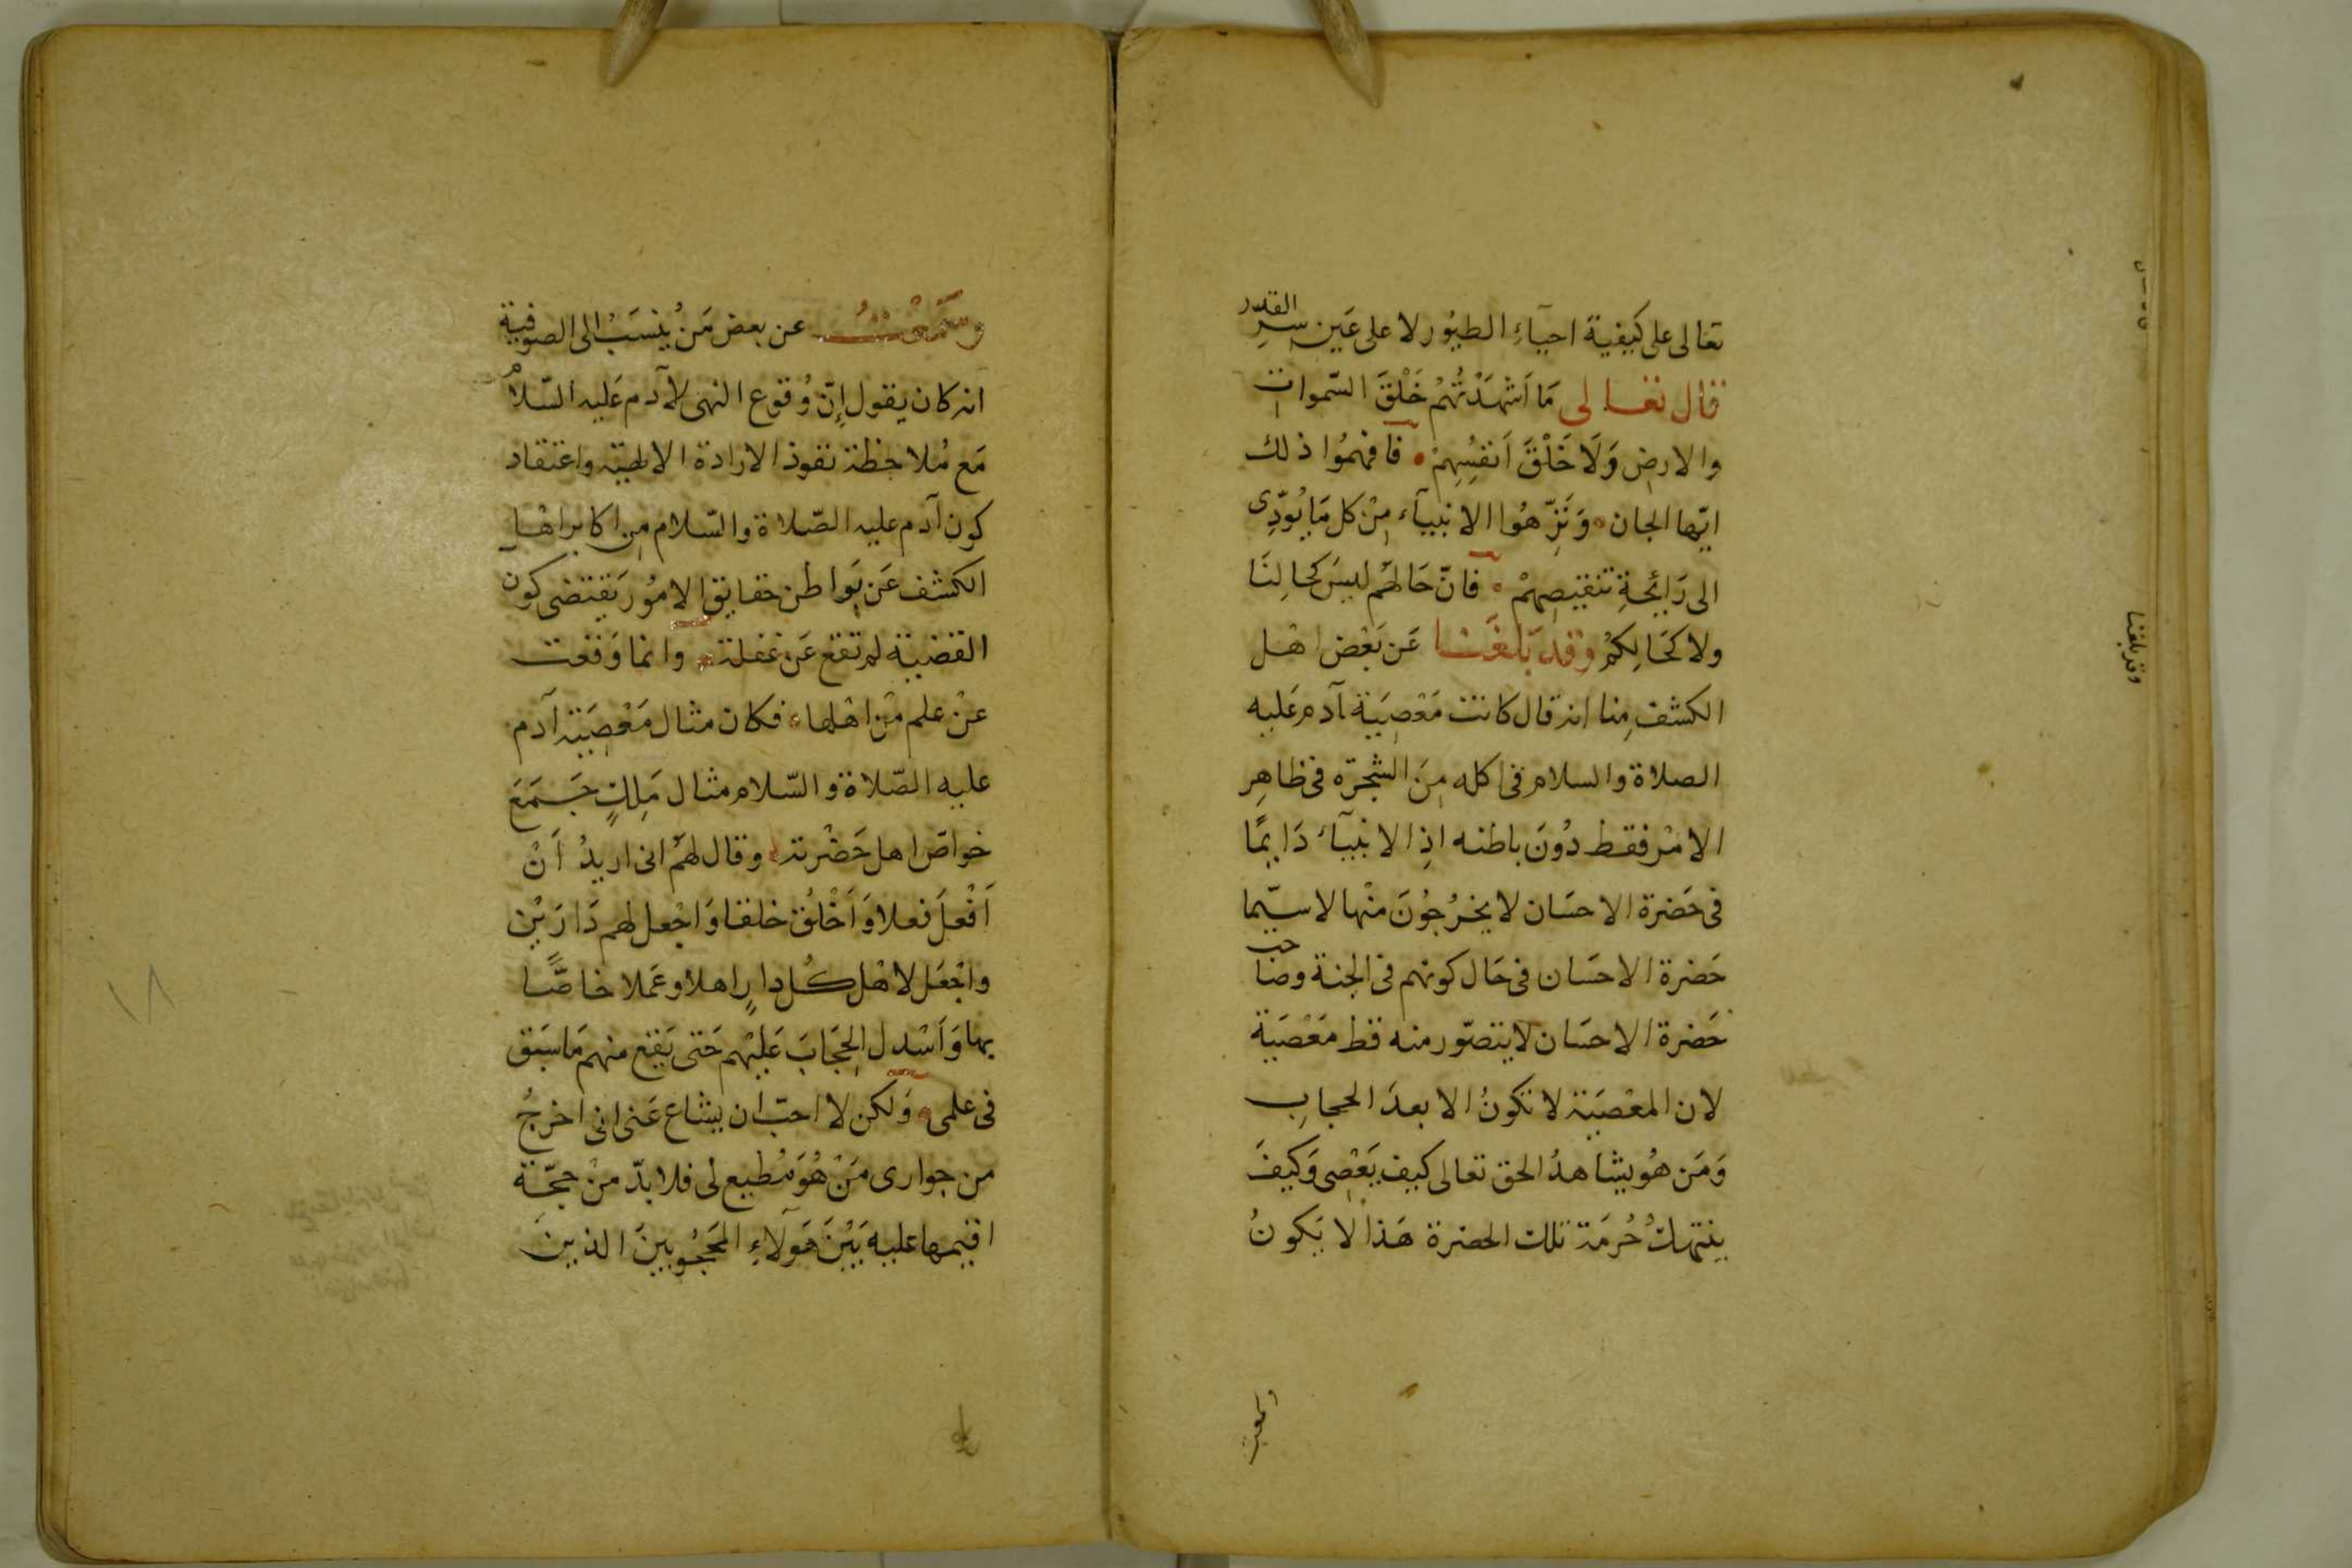 تعَالى على كيفية احيآءِ الطيُور لا على عَين سِرِّ القدَر
قال تعالى مَا اَشْهَدْتُهُمْ خَلْقَ السّموات
والارض وَلَا خَلْقَ اَنفُسِهِمْ فَافهمُوا ذلك
ايّها الجان وَنَزّهُوا الانبيآء مِنْ كل مَا يُؤدِّى
الى رَايحةِ تنقيصِهمْ فانّ حَالهُم ليسَ كحالِنَا
ولا كحَالِكمْ وقد بَلغَنَا عَن بَعْض اهْل
الكشف مِنا انه قال كانت مَعْصِيَة آدم عَليه
الصلاة والسلام فى اكله مِنَ الشجرَة فى ظاهِر
الامْر فقط دُونَ باطنه اذِ الانبيآء دَايمًا
فى حَضرة الاحسَان لا يخرُجُونَ منْها لا سيّما
حَضرة الاحسَان فى حَال كونهم فى الجنة وصَاحب
حَضرة الاحسَان لا يتصوّر منه قط مَعْصَيَة
لان المعْصَيَة لا تكونُ الا بعدَ الحجابِ
وَمَن هُو يشاهدُ الحق تعالى كيف يَعْصِى وَكيفَ
ينتهكُ حُرمَة تلك الحضرة هَذا لا يَكونُ
وسمعت
وقد بلغنا
وسَمعْتُ عن بعض مَنْ يُنسَبُ الى الصوفية
انه كان يقول إنّ وُقوع النهى لآدم عَليه السّلام
مَع مُلاحظة نفوذ الارادة الالهية واعتقاد
كون آدم عليه الصّلاة والسّلام مِن اكابر اهْل
الكشف عَن بَواطن حقايق الامُور يَقتضى كون
القضية لم تقع عَن غفلة وانما وَقعت
عنْ علم مْن اهْلها فكان مثال مَعْصِيَة آدم
عليه الصّلاة والسّلام مثال مَلِكٍ جَمَعَ
خواصّ اهل حَضْرته وقال لهُم انى اريدُ اَنْ
اَفْعلَ فعلا وَاَخْلُق خلقا وَاجْعل لهم دَارَيْن
واجْعَل لاهْل كُل دارٍ اهلا وعَملا خاصًّا
بها وَاَسْدل الحِجَابَ عَليْهم حَتى يَقع منهم مَا سَبَق
فى علمى وَلكن لا احبّ ان يشاع عَنى انى اخرجُ
من جوارى مَنْ هُوَ مُطيع لى فلا بدّ منْ حجّة
اقيمها عليه بَيْنَ هَؤلاءِ المَحجُوبينَ الذينَ
١٨